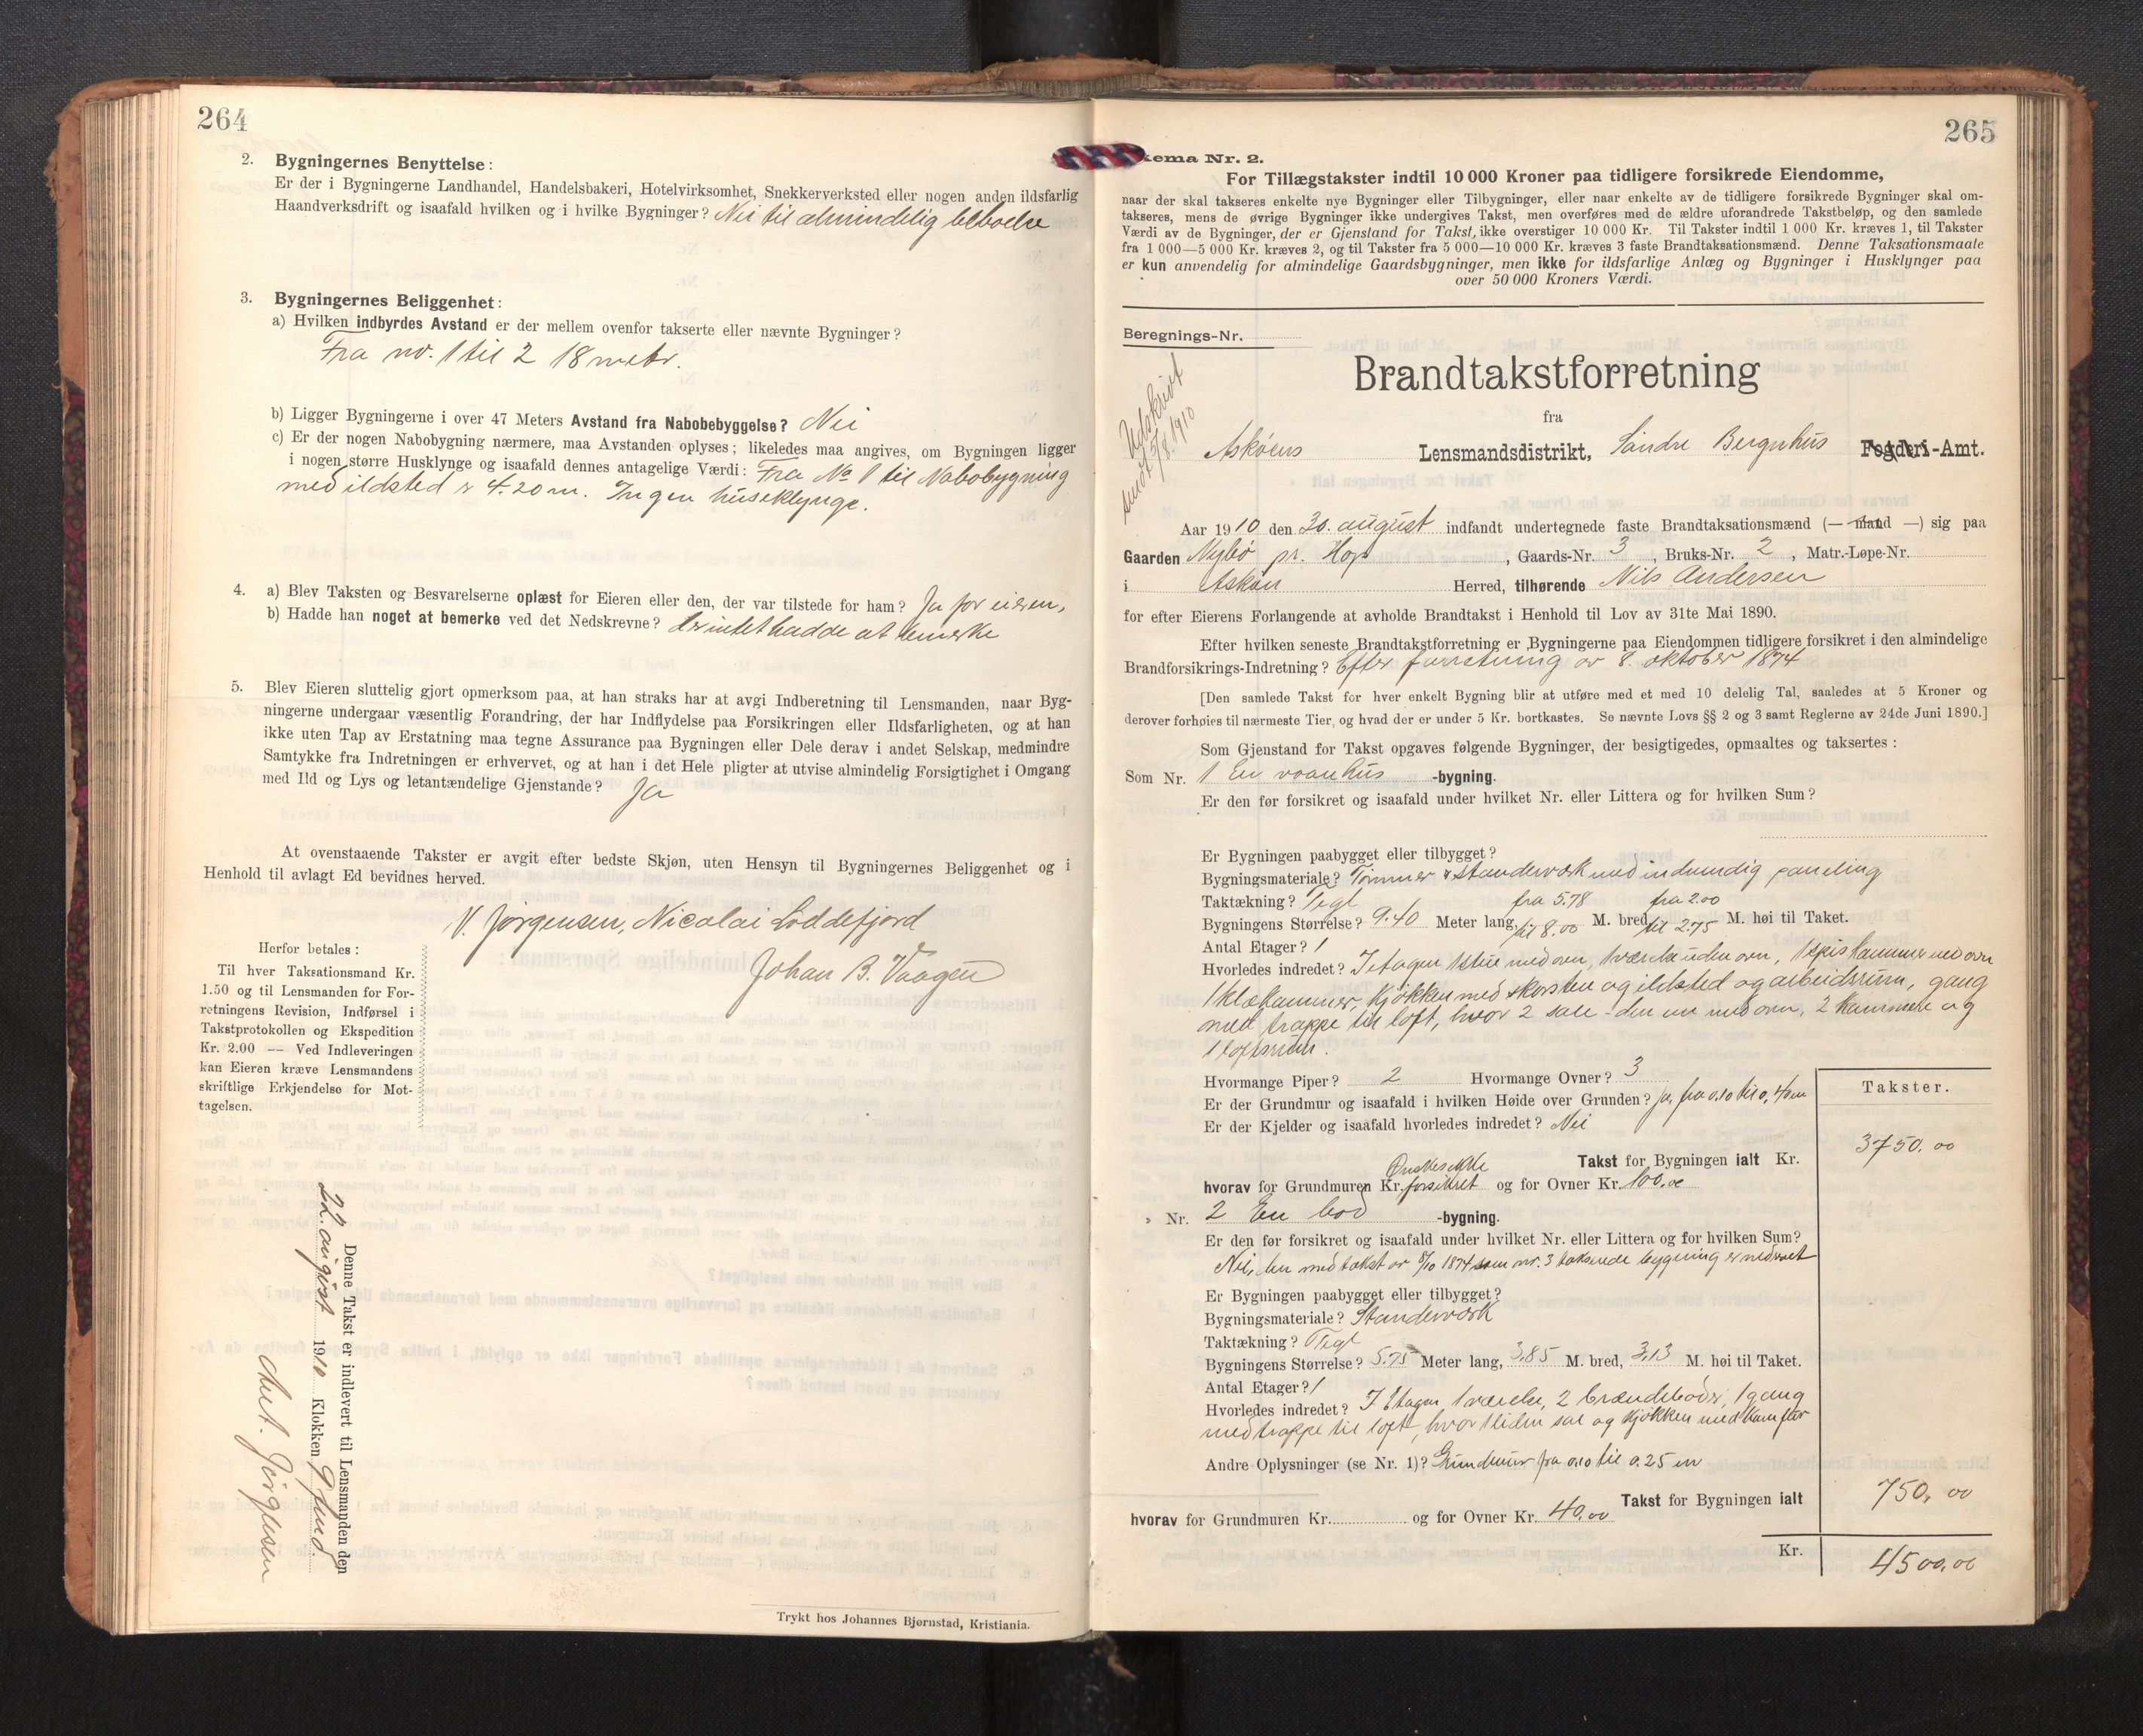 264
2. Bygningernes Benyttelse:
Er der i Bygningerne Landhandel, Handelsbakeri, Hotelvirksomhet, Snekkerverksted eller nogen anden ildsfarlig
Haandverksdrift og isaafald hvilken og i hvilke Bygninger? Nei til almindelig beboelse
3. Bygningernes Beliggenhet:
a) Hvilken indbyrdes Avstand er der mellem ovenfor takserte eller nævnte Bygninger?
Fra nr. 1 til 2 18 metr.
b) Ligger Bygningerne i over 47 Meters Avstand fra Nabobebyggelse? Nei
c) Er der nogen Nabobygning nærmere, maa Avstanden oplyses; likeledes maa angives, om Bygningen ligger
i nogen større Husklynge og isaafald dennes antagelige Værdi: Fra No 1 til Nabobygning
med ildsted er 4.20 m. Ingen huseklynge.
4. a) Blev Taksten og Besvarelserne oplæst for Eieren eller den, der var tilstede for ham? Ja for eieren,
b) Hadde han noget at bemerke ved det Nedskrevne? der intet hadde at bemerke
5. Blev Eieren sluttelig gjort opmerksom paa, at han straks har at avgi Indberetning til Lensmanden, naar Byg-
ningerne undergaar væsentlig Forandring, der har Indflydelse paa Forsikringen eller Ildsfarligheten, og at han
ikke uten Tap av Erstatning maa tegne Assurance paa Bygningen eller Dele derav i andet Selskap, medmindre
Samtykke fra Indretningen er erhvervet, og at han i det Hele pligter at utvise almindelig Forsigtighet i Omgang
med Ild og Lys og letantændelige Gjenstande? Ja
At ovenstaaende Takster er avgit efter bedste Skjøn, uten Hensyn til Bygningernes Beliggenhet og i
Henhold til avlagt Ed bevidnes herved.
V. Jørgensen, Nicolai Loddefjord
Johan B. Vaagen
Herfor betales:
Til hver Taksationsmand Kr.
1.50 og til Lensmanden for For-
retningens Revision, Indførsel i
Takstprotokollen og Ekspedition
Kr. 2.00 — Ved Indleveringen
kan Eieren kræve Lensmandens
skriftlige Erkjendelse for Mot-
tagelsen.
Denne Takst er indlevert til Lensmanden den
22 august 1910 Klokken 9 fmd.
Chr. Jørgensen
Trykt hos Johannes Bjørnstad, Kristiania.
265
kema Nr. 2.
For Tillægstakster indtil 10 000 Kroner paa tidligere forsikrede Eiendomme,
naar der skal takseres enkelte nye Bygninger eller Tilbygninger, eller naar enkelte av de tidligere forsikrede Bygninger skal om-
takseres, mens de øvrige Bygninger ikke undergives Takst, men overføres med de ældre uforandrede Takstbeløp, og den samlede
Værdi av de Bygninger, der er Gjenstand for Takst, ikke overstiger 10 000 Kr. Til Takster indtil 1 000 Kr. kræves 1, til Takster
fra 1 000—5 000 Kr. kræves 2, og til Takster fra 5 000—10 000 Kr. kræves 3 faste Brandtaksationsmænd. Denne Taksationsmaate
er kun anvendelig for almindelige Gaardsbygninger, men ikke for ildsfarlige Anlæg og Bygninger i Husklynger paa
over 50 000 Kroners Værdi.
Beregnings-Nr.
Udskrivt
sendt 5/8. 1910
Brandtakstforretning
fra
Askøens Lensmandsdistrikt, Søndre Bergenhus Fogderi-Amt.
Aar 1910 den 30. august indfandt undertegnede faste Brandtaksationsmænd (— mand —) sig paa
Gaarden Nybø pr. Hop, Gaards-Nr. 3, Bruks-Nr. 2, Matr.-Løpe-Nr.
i Askøen Herred, tilhørende Nils Andersen
for efter Eierens Forlangende at avholde Brandtakst i Henhold til Lov av 31te Mai 1890.
Efter hvilken seneste Brandtakstforretning er Bygningerne paa Eiendommen tidligere forsikret i den almindelige
Brandforsikrings-Indretning? Efter forretning av 8. oktober 1874
[Den samlede Takst for hver enkelt Bygning blir at utføre med et med 10 delelig Tal, saaledes at 5 Kroner og
derover forhøies til nærmeste Tier, og hvad der er under 5 Kr. bortkastes. Se nævnte Lovs §§ 2 og 3 samt Reglerne av 24de Juni 1890.]
Som Gjenstand for Takst opgaves følgende Bygninger, der besigtigedes, opmaaltes og taksertes:
Som Nr. 1 En vaanhus -bygning.
Er den før forsikret og isaafald under hvilket Nr. eller Littera og for hvilken Sum?
Er Bygningen paabygget eller tilbygget?
Bygningsmateriale? Tømmer & standerværk med indvendig paneling
Taktækning? Tegl
fra 5.78 fra 2.00
Bygningens Størrelse? 9.40 Meter lang, til 8.00 M. bred, til 2.75 M. høi til Taket.
Antal Etager? 1
Hvorledes indredet? I etagen 1 stue med ovn, 1 værelse uden ovn, 1 spiskammer med ovn
1 klækammer, kjøkken med skorsten og ildsted og arbeidsrum, gang
med trappe til loft, hvor 2 sale - den ene med ovn, 2 kammere og
1 loftsrum.
Hvormange Piper? 2 Hvormange Ovner? 3
Er der Grundmur og isaafald i hvilken Høide over Grunden? Ja, fra 0.10 til 0,40 m
Er der Kjelder og isaafald hvorledes indredet? Nei
Takster.
Takst for Bygningen ialt Kr. 3750.00
Ønskes ikke
hvorav for Grundmuren Kr. forsikret og for Ovner Kr. 100.00
» Nr. 2 En bod -bygning.
Er den før forsikret og isaafald under hvilket Nr. eller Littera og for hvilken Sum?
Nei, den med takst av 8/10 1874 som nr. 3 takserede bygning er nedrevet
Er Bygningen paabygget eller tilbygget?
Bygningsmateriale? Standerværk
Taktækning? Tegl
Bygningens Størrelse? 5.75 Meter lang, 3,85 M. bred, 3,13 M. høi til Taket.
Antal Etager? 1
Hvorledes indredet? I Etagen 1 værelse, 2 brændeboder, 1 gang
med trappe til loft, hvor 1 liden sal og kjøkken med komfur
Andre Oplysninger (se Nr. 1)? Grundmur fra 0.10 til 0.25 m
Takst for Bygningen ialt 750,00
hvorav for Grundmuren Kr. og for Ovner Kr. 40.00
Kr. 4500,00